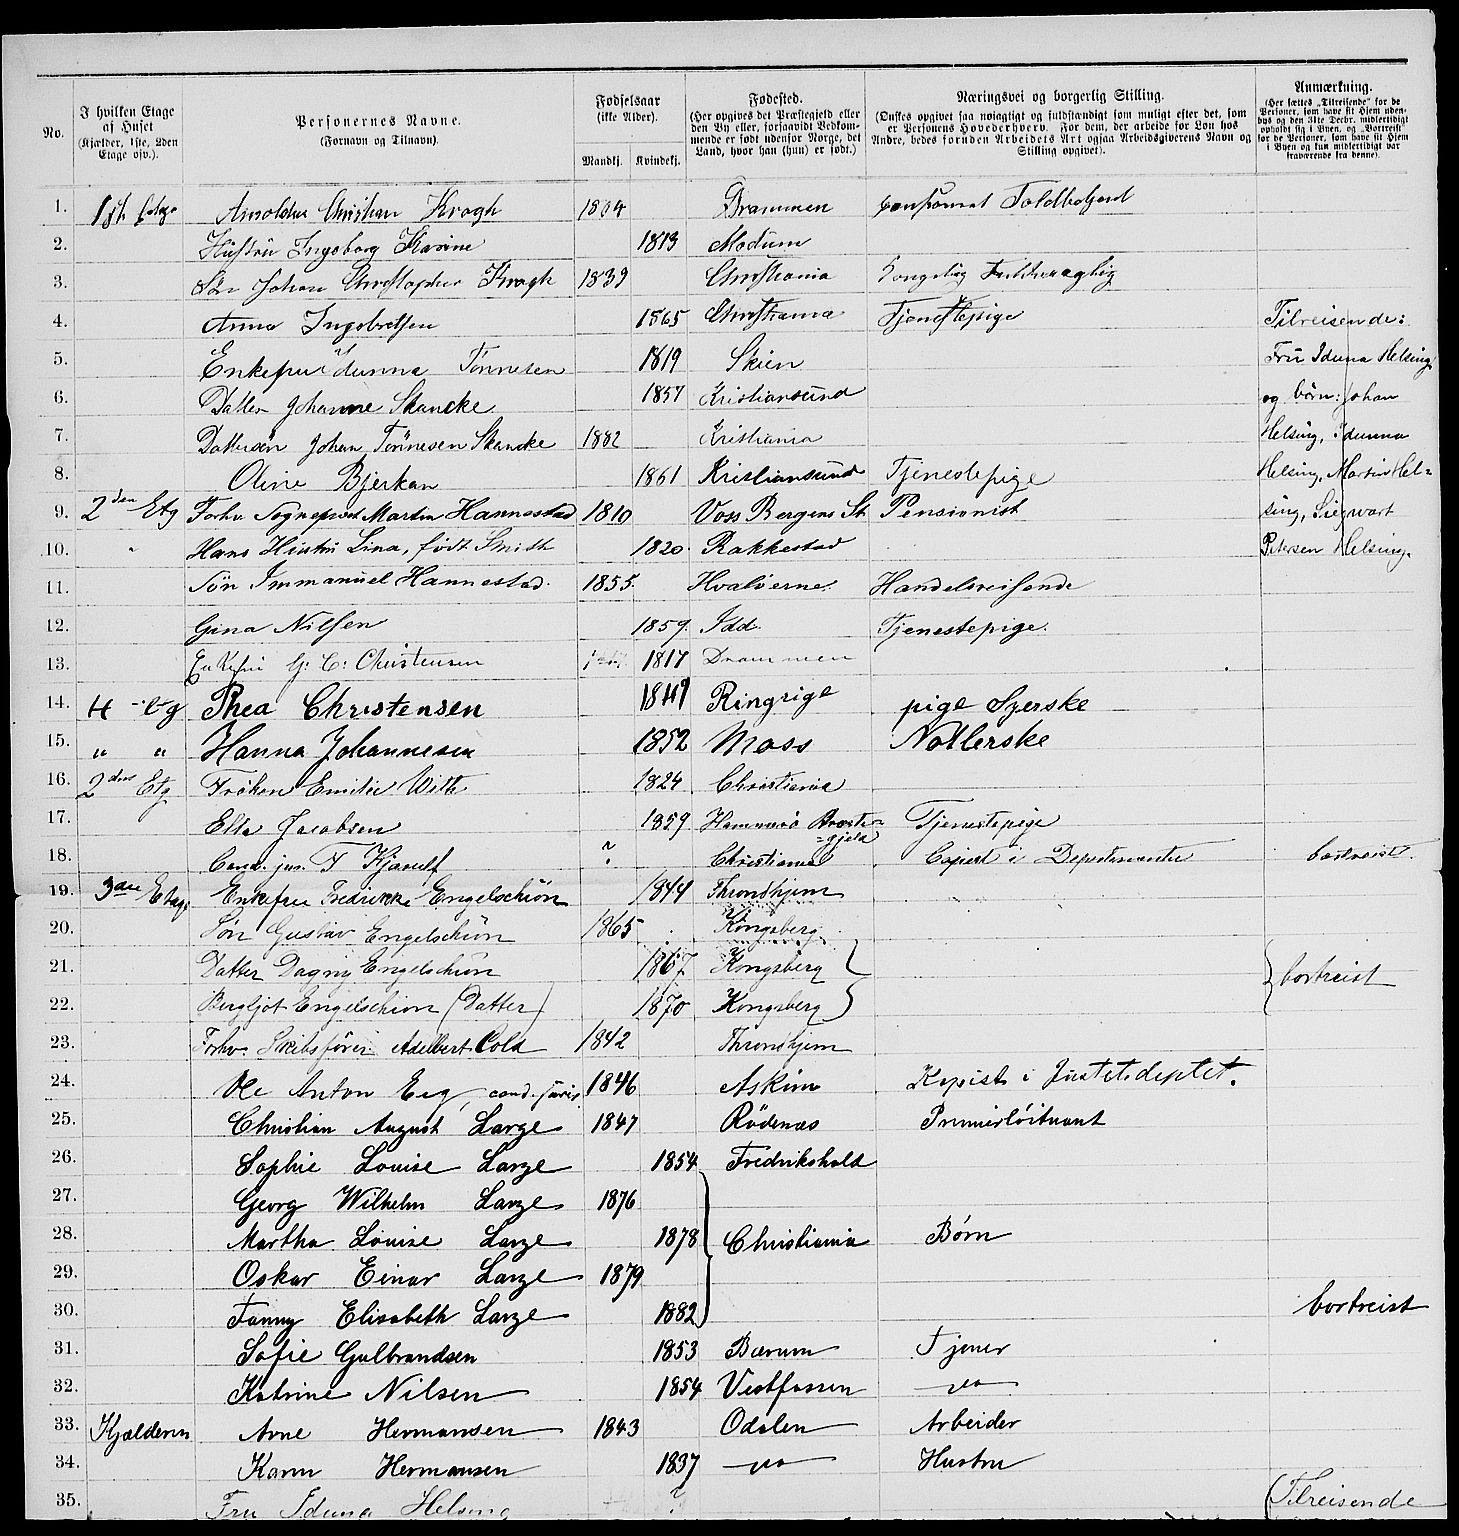 No.
I hvilken Etage af Huset (Kjælder, 1ste, 2den Etage osv.).
Personernes Navne. (Fornavn og Tilnavn).
Fødselsaar (ikke Alder). Mandkj. Kvindekj.
Fødested. (Her opgives det Præstegjeld eller den By eller, forsaavidt Vedkommende er født udenfor Norge, det Land, hvor han (hun) er født.)
Næringsvei og borgerlig Stilling. (Ønskes opgivet saa nøiagtigt og fuldstændigt som muligt efter det, som er Personens Hovederhverv. For dem, der arbeide for Løn hos Andre, bedes foruden Arbeidets Art ogsaa Arbeidsgiverens Navn og Stilling opgivet).
Anmærkning. (Her sættes „Tilreisende“ for de Personer, som have sit Hjem udenbys og den 31te Decbr. midlertidigt opholdt sig i Byen, og „Bortreist“ for de Personer, som have sit Hjem i Byen og kun midlertidigt var fraværende fra denne).
1. 1ste Etage Arnoldus Christian Krogh 1804 Drammen Toldbetjent
2. Hustru Ingeborg Karine 1813 Modum
3. Søn Johan Christopher Krogh 1839 Christiania
4. Anna Ingebretsen 1865 Christiania Tjenestepige Tilreisende:
5. Enkefru Idunna Tönnesen 1819 Skien Fru Iduna Helsing
6. Datter Johanne Skancke 1857 Kristiansund og börn: Johan
7. Dattersön Johan Tönnesen Skancke 1882 Kristiania Helsing, Idunna
8. Oline Bjerkan 1861 Kristiansund Tjenestepige Helsing, Martin Hel=
9. 2den Etg Forhv. Sogneprest Martin Hannestad 1810 Voss Bergens St. Pensionist sing, Sigwart
10. " Hans Hustru Lina, født Smith 1820. Rakkestad Petersen Helsing.
11. Søn Immanuel Hannestad. 1855. Hvaløerne. Handelsreisende
12. Gina Nilsen 1859. Idd. Tjenestepige.
13. Enkefru G. C. Christensen 1817 Drammen
14. 4 Etg Thea Christensen 1849 Ringrige pige Syerske
15. " " Hanna Johannesen 1852 Moss Natlerske
16. 2den Etg Frøken Emilie With 1824 Christiania
17. Ella Jacobsen 1859 Hammerö Præste=gjeld Tjenestepige
18. Cand. jur. T Kjerulf ? Christiania Copist i Departementer bortreist.
19. 3die Etage Enkefru Fredrikke Engelschiön 1844 Throndhjem
20. Sön Gustav Engelschiön 1865 Kongsberg
21. Datter Dagny Engelschiön 1867 Kongsberg } { bortreist
22. Bergljot Engelschiön (Datter) 1870 Kongsberg }
23. Forhv. Skibsfører Adelbert Cold 1842 Throndhjem
24. Ole Anton Eeg, cand. juris 1846 Askim Kopist i Justitsdeptet.
25. Christian August Lange 1847 Rödenæs Premierlöitnant
26. Sophie Louise Lange 1854 Fredrikshald
27. Georg Wilhelm Lange 1876
28. Martha Louise Lange 1878 Christiania Børn
29. Oskar Einar Lange 1879
30. Fanny Elisabeth Lange 1882 bortreist
31. Sofie Gulbrandsen 1853 Bærum Tjener
32. Katrine Nilsen 1854 Vestfossen
33. Kjælderen Arne Hermansen 1843 Odalen Arbeider
34. Karen Hermansen 1837 Hustru
35. Fru Iduna Helsing ? (Tilreisende